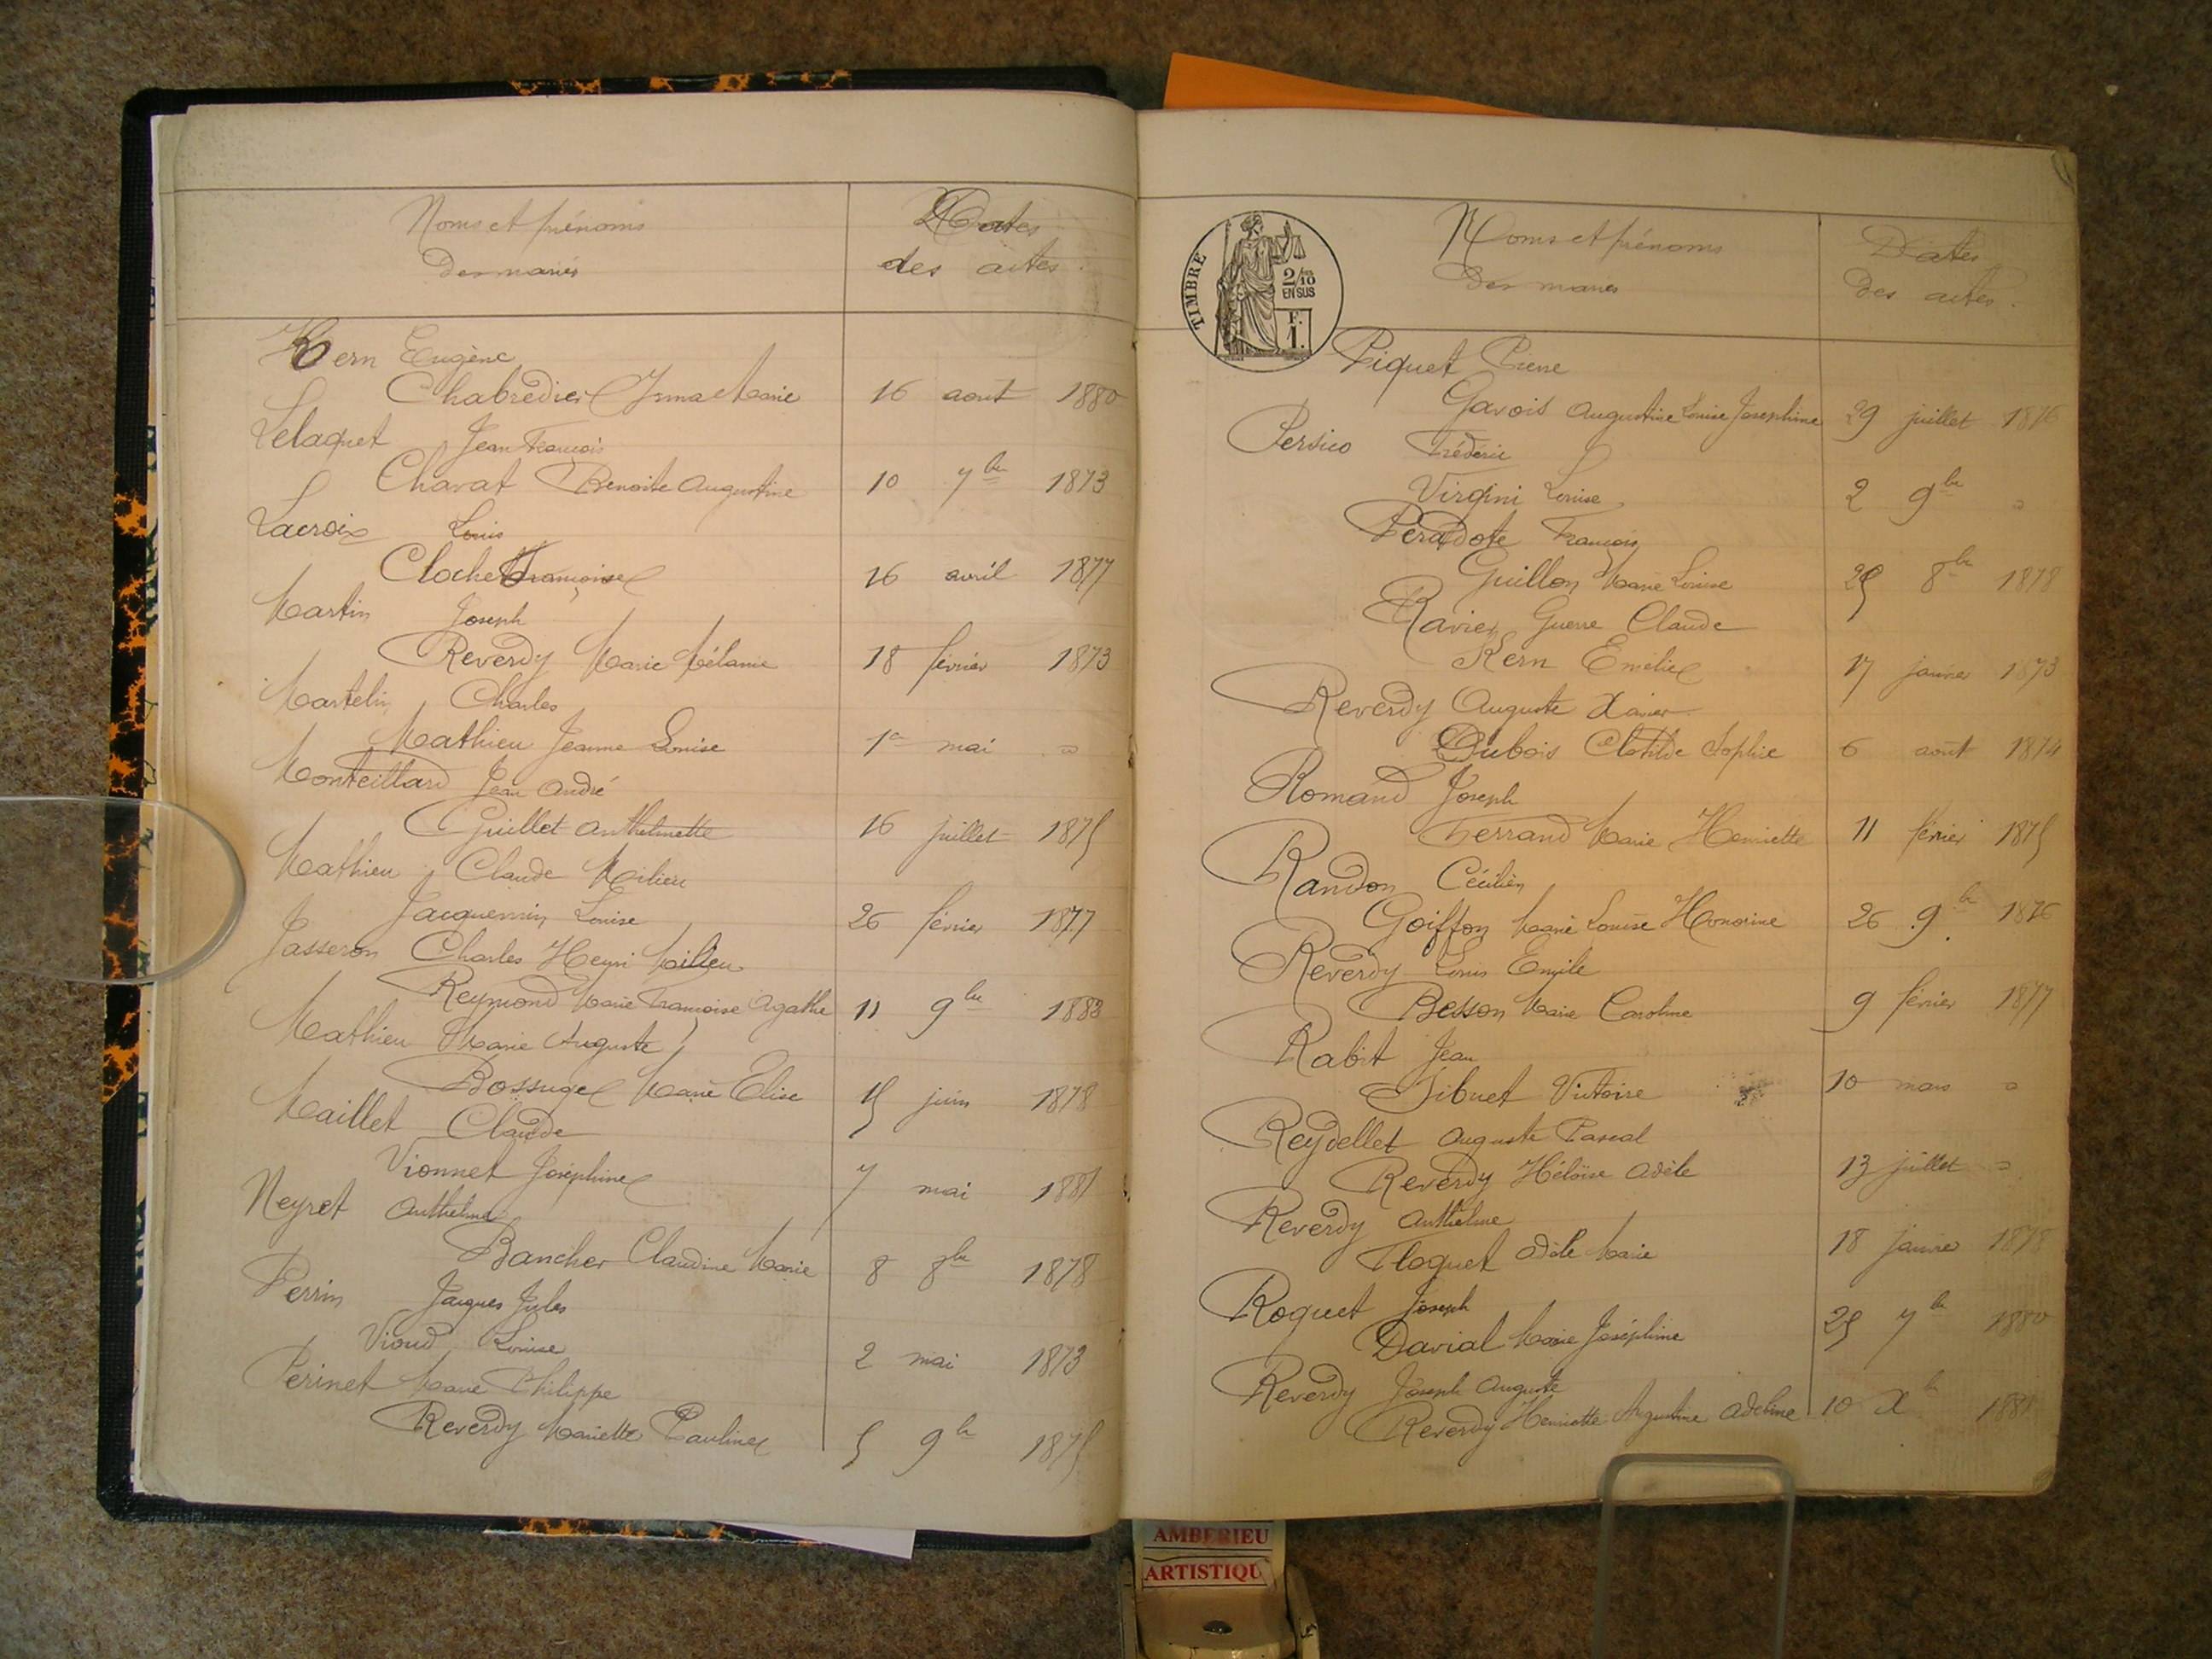 Noms et prénoms
des mariés
Dates
des actes.
Kern Eugène
Chabredier Irma Marie 16 aout 1880
Lelaquet Jean François
Charat Benoite Augustine 10 7bre 1873
Lacroix Louis
Clochet Françoise 16 avril 1877
Martin Joseph
Reverdy Marie Mélanie 18 février 1873
Martelin Charles
Mathieu Jeanne Louise 1er mai "
Monteillard Jean André
Guillet Anthelmette 16 juillet 1875
Mathieu Claude Milieu
Jacquemin Louise 26 février 1877
Passeron Charles Henri
Reymond Marie Françoise Agathe 11 9bre 1883
Mathieu Marie Auguste
Bossuge Marie Elise 15 juin 1878
Maillet Claude
Vionnet Joséphine 7 mai 1881
Neyret Anthelme
Bancher Claudine Marie 8 8bre 1878
Perrin Jacques Jules
Vioud Louise 2 mai 1873
Perinet Marie Philippe
Reverdy Mariette Pauline 5 9bre 1875
TIMBRE
2/10
EN SUS
F.
1.
Noms et prénoms
des mariés
Dates
des actes.
Piquet Pierre
Gavois Augustine Louise Josephine 29 juillet 1876
Persico Frédéric
Virgini Louise 2 9bre "
Peradote François
Guillon Marie Louise 25 8bre 1878
Ravier Guerre Claude
Kern Emélie 17 janvier 1873
Reverdy Auguste Xavier
Dubois Clotilde Sophie 6 août 1874
Romand Joseph
Ferrand Marie Henriette 11 février 1875
Randon Cécilien
Goiffon Marie Louise Honorine 26 9bre 1876
Reverdy Louis Emile
Besson Marie Caroline 9 février 1877
Rabit Jean
Tibuet Victoire 10 mars "
Reydellet Auguste Pascal
Reverdy Héloïse Adèle 13 juillet "
Reverdy Anthelme
Floquet Adèle Marie 18 janvier 1878
Roquet Joseph
Davial Marie Joséphine 25 7bre 1880
Reverdy Joseph Auguste
Reverdy Henriette Augustine Adeline 10 Xbre 1881
AMBERIEU
ARTISTIQU